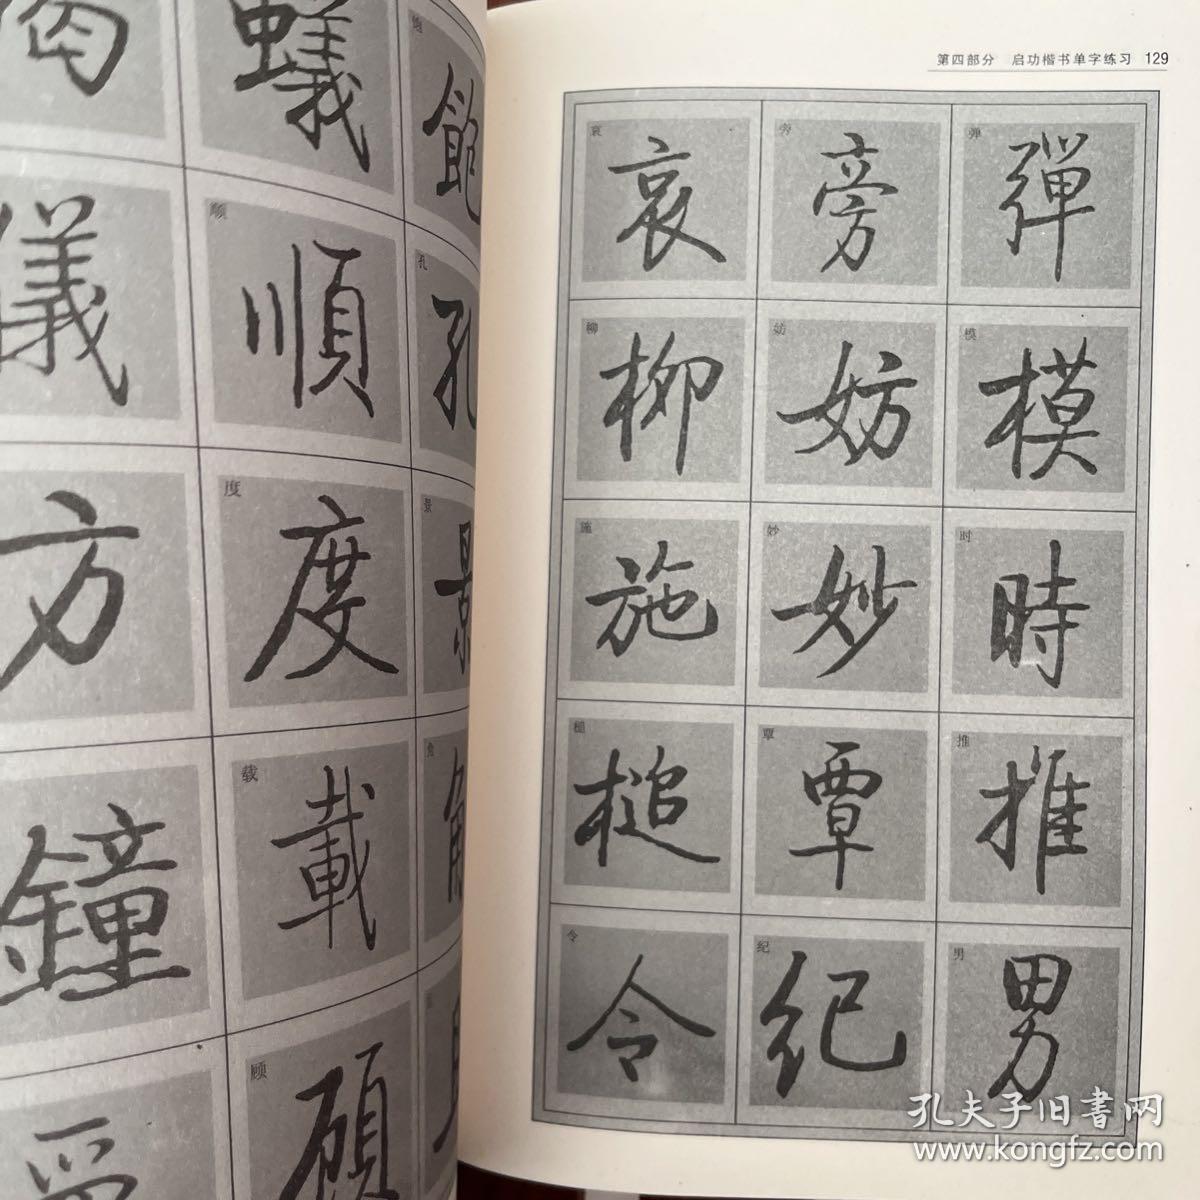 蟻
鲍
飽
儀
顺
順
孔
孔
方
度
度
景
景
鐘
载
載
角
角
顾
顧
第四部分 启功楷书单字练习 129
哀 旁 弹
哀 旁 彈
柳 妨 模
柳 妨 模
施 妙 时
施 妙 時
槌 覃 推
槌 覃 推
令 纪 男
令 紀 男
孔夫子旧書网
www.kongfz.com